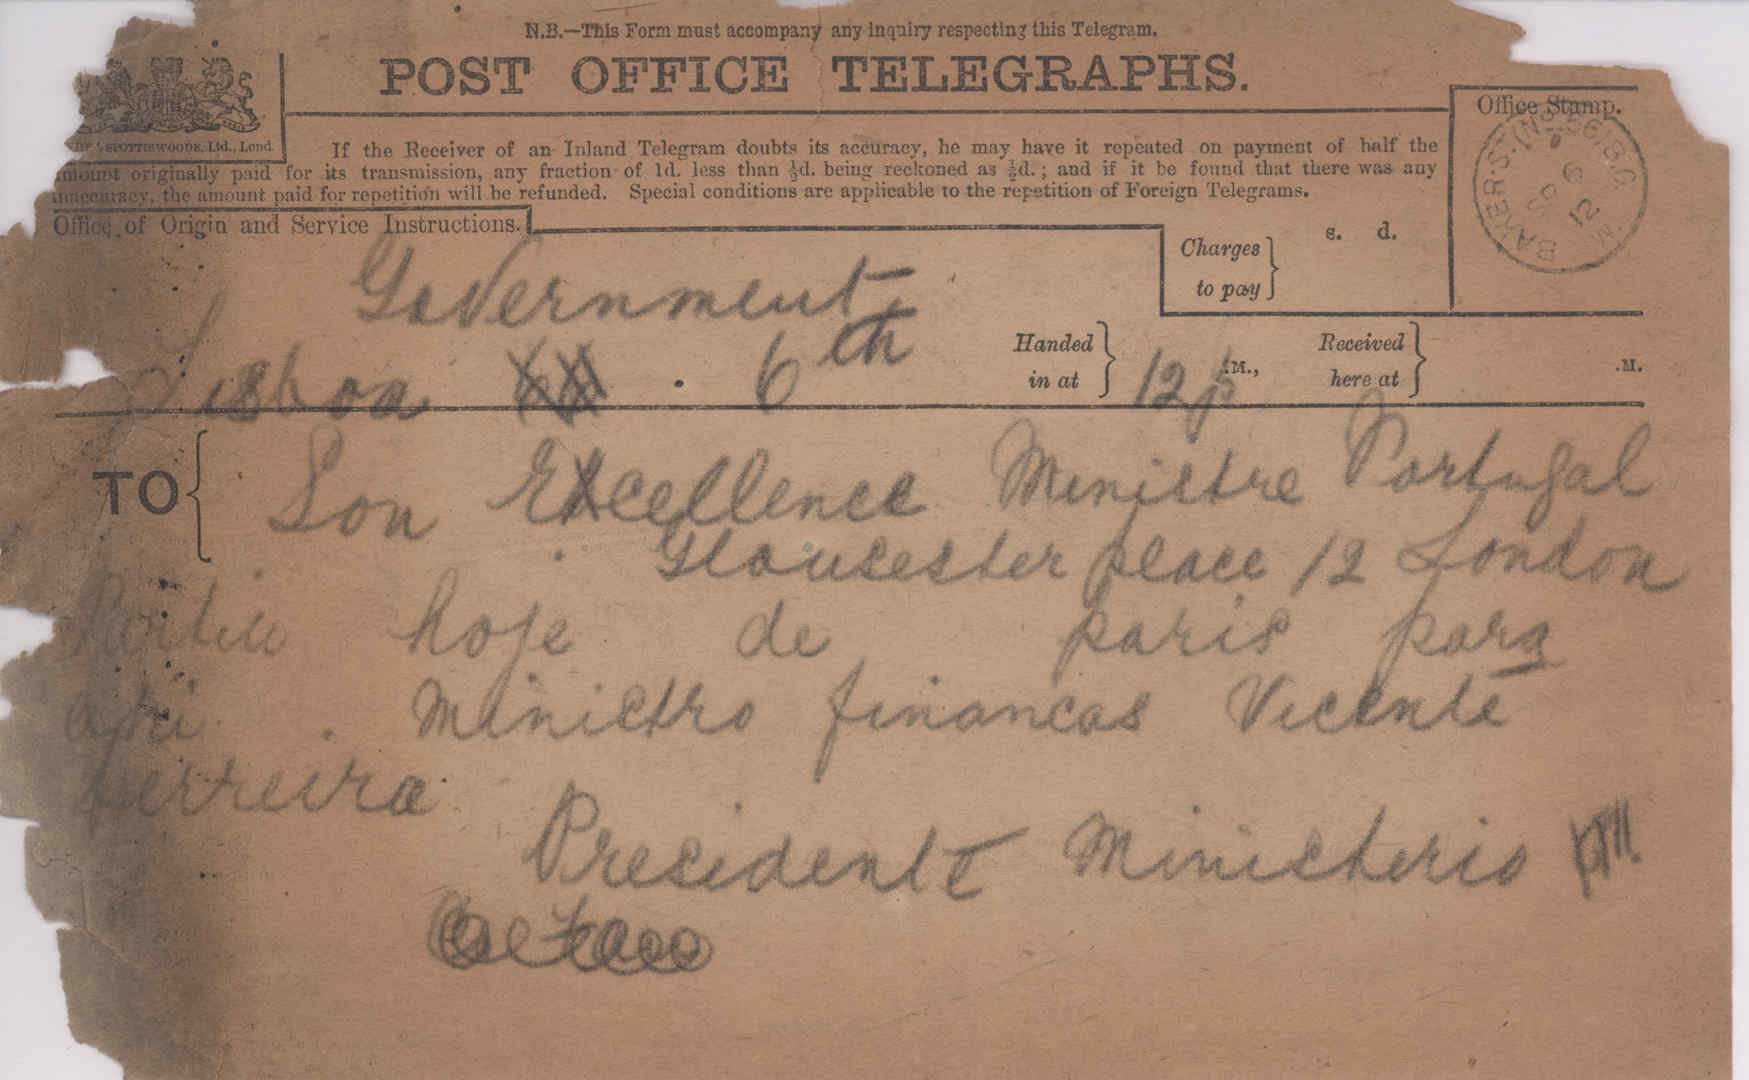 N.B.—This Form must accompany any inquiry respecting this Telegram.
POST OFFICE TELEGRAPHS.
SPOTTISWOODE, Ltd., Lond.
If the Receiver of an Inland Telegram doubts its accuracy, he may have it repeated on payment of half the
amount originally paid for its transmission, any fraction of 1d. less than ½d. being reckoned as ½d.; and if it be found that there was any
inaccuracy, the amount paid for repetition will be refunded. Special conditions are applicable to the repetition of Foreign Telegrams.
Office Stamp.
BAKER·ST
12
Office of Origin and Service Instructions.
Charges to pay
s. d.
Government
Lisboa 6th
Handed in at 12p .M.,
Received here at .M.
TO
Son Excellence Ministre Portugal
Gloucester place 12 London
hoje de paris para
Ministro financas Vicente
Ferreira
Presidente Ministerio